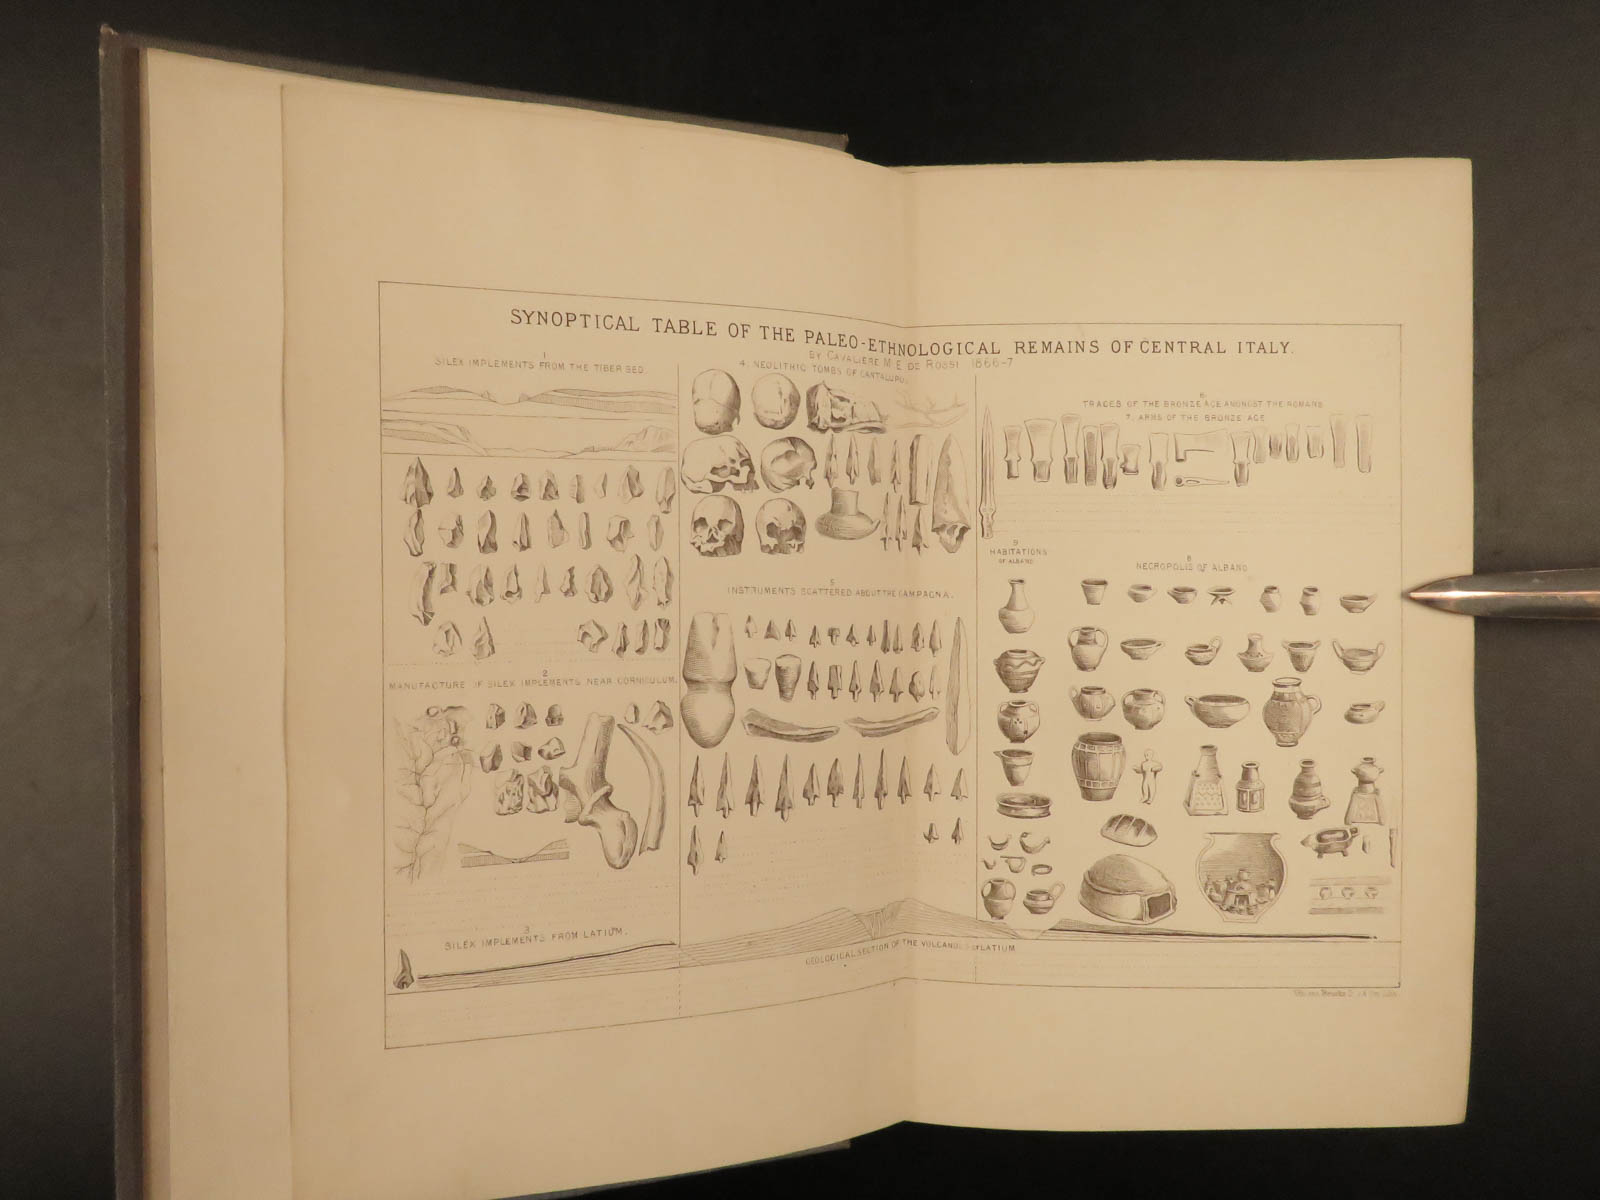 SYNOPTICAL TABLE OF THE PALEO-ETHNOLOGICAL REMAINS OF CENTRAL ITALY.
BY CAVALIERE M. E. DE ROSSI 1866-7
1
SILEX IMPLEMENTS FROM THE TIBER BED.
2
MANUFACTURE OF SILEX IMPLEMENTS NEAR CORNICULUM.
3
SILEX IMPLEMENTS FROM LATIUM.
4. NEOLITHIC TOMBS OF CANTALUPO.
5
INSTRUMENTS SCATTERED ABOUT THE CAMPAGNA.
6
TRACES OF THE BRONZE AGE AMONGST THE ROMANS
7. ARMS OF THE BRONZE AGE
9
HABITATIONS
OF ALBANO
8
NECROPOLIS OF ALBANO
GEOLOGICAL SECTION OF THE VOLCANOES OF LATIUM